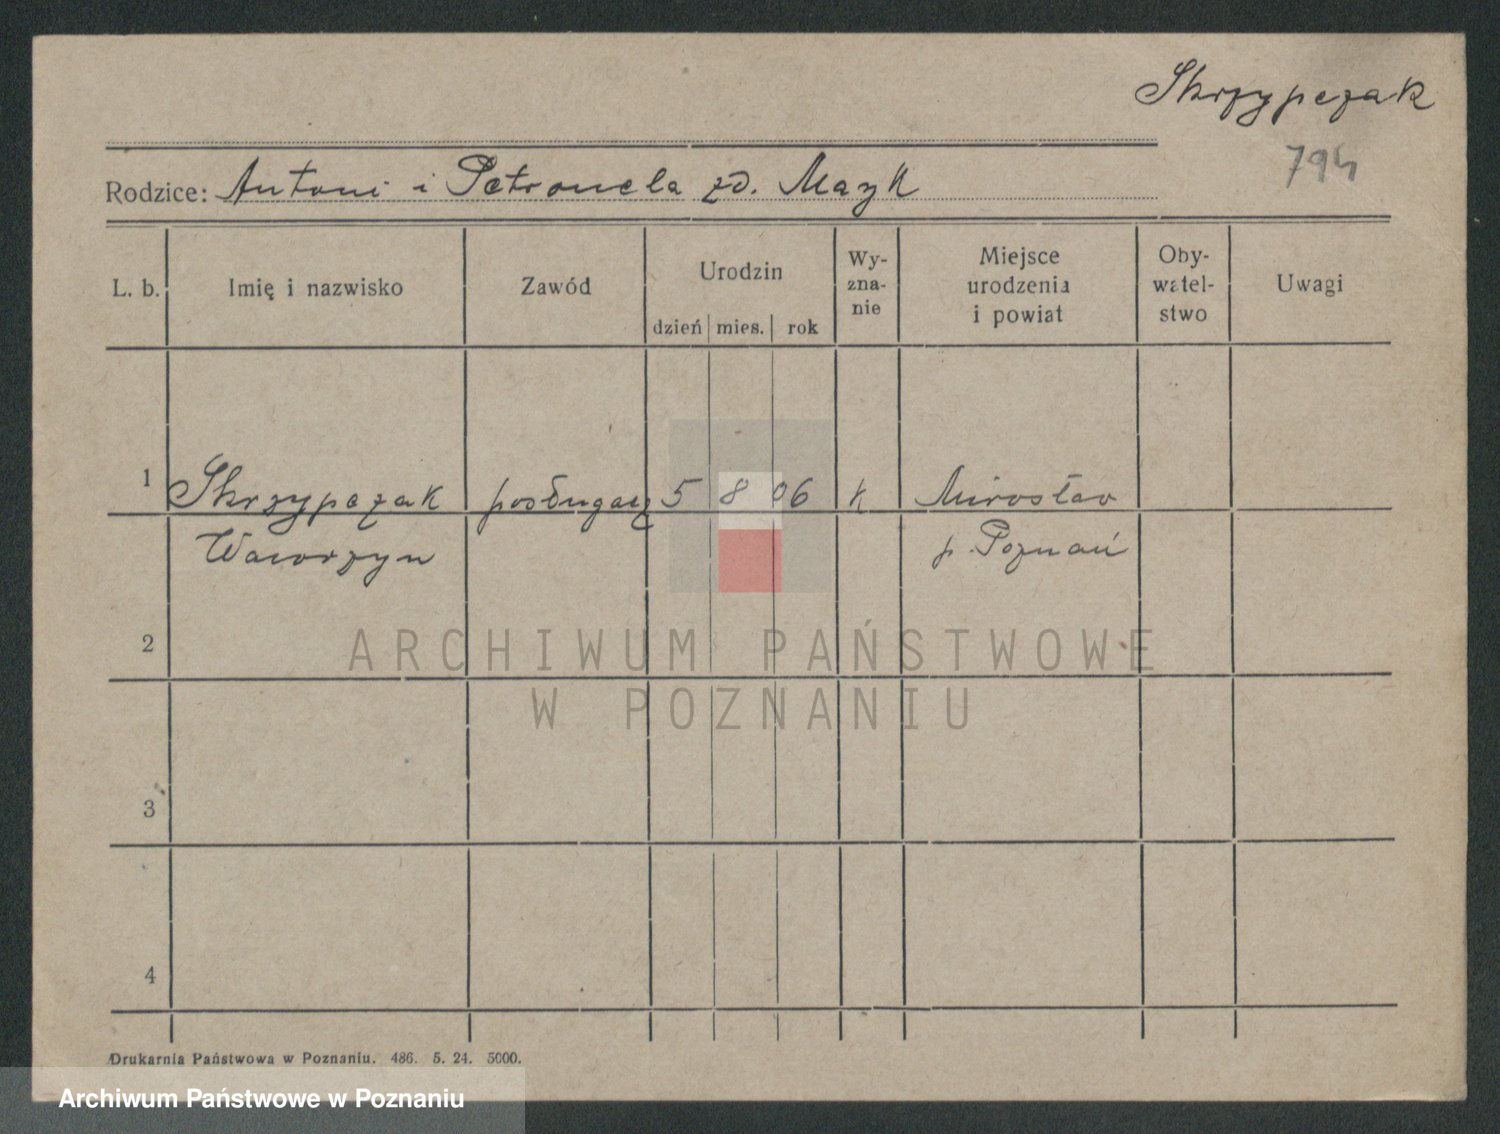 Skrzypczak
794
Rodzice: Antoni i Petronela zd. Mazyk
L. b. Imię i nazwisko Zawód Urodzin dzień mies. rok Wy-zna-nie Miejsce urodzenia i powiat Oby-watel-stwo Uwagi
1 Skrzypczak posługacz 5 8 06 k Mirosław
Wawrzyn p. Poznań
2
ARCHIWUM PAŃSTWOWE
W POZNANIU
3
4
Drukarnia Państwowa w Poznaniu. 486. 5. 24. 5000.
Archiwum Państwowe w Poznaniu